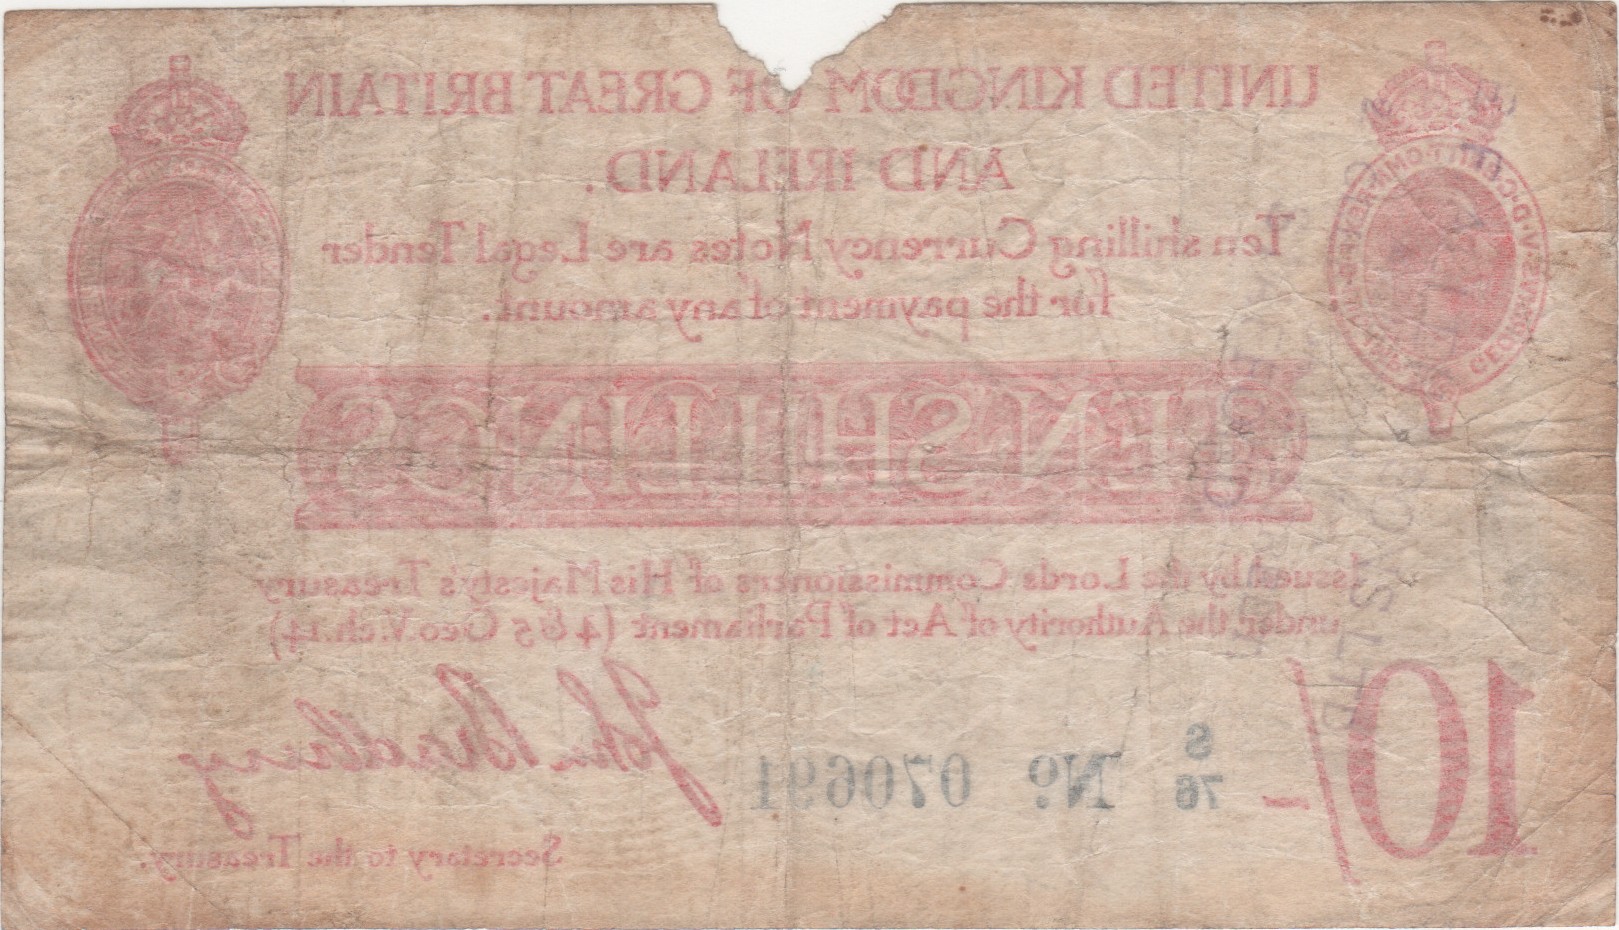 UNITED KINGDOM OF GREAT BRITAIN
AND IRELAND.
Ten shilling Currency Notes are Legal Tender
for the payment of any amount.
TEN SHILLINGS
Issued by the Lords Commissioners of His Majesty's Treasury
under the Authority of Act of Parliament (4 & 5 Geo.V.ch.14)
10/-
S
76
No. 070691
John Bradbury
Secretary to the Treasury.